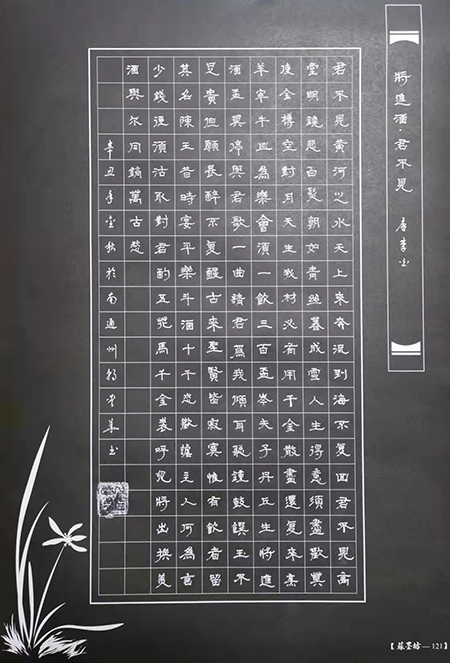 將進酒·君不見 唐 李白
君不見黃河之水天上來奔流到海不復回君不見高
堂明鏡悲白髮朝如青絲暮成雪人生得意須盡歡莫
使金樽空對月天生我材必有用千金散盡還復來烹
羊宰牛且為樂會須一飲三百盃岑夫子丹丘生將進
酒盃莫停與君歌一曲請君為我傾耳聽鐘鼓饌玉不
足貴但願長醉不復醒古來聖賢皆寂寞惟有飲者留
其名陳王昔時宴平樂斗酒十千恣歡謔主人何為言
少錢徑須沽取對君酌五花馬千金裘呼兒將出換美
酒與爾同銷萬古愁
辛丑年金秋於南通州書
【蘇墨坊—121】